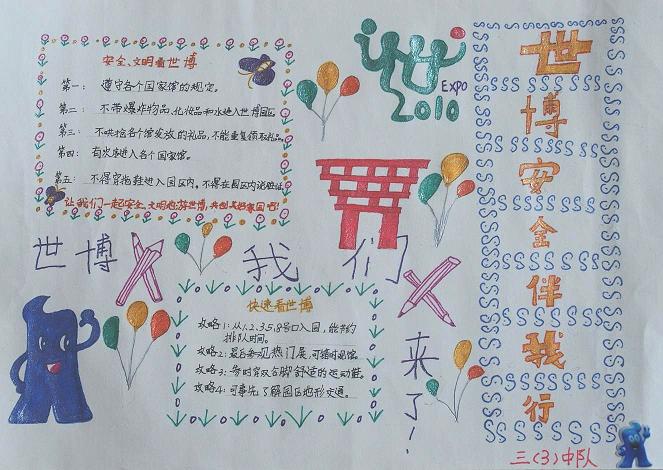 安全、文明看世博
第一： 遵守各个国家馆的规定。
第二： 不带爆炸物品,化妆品和水进入世博园区
第三： 不哄抢各个馆发放的礼品,不能重复领取礼品。
第四： 有次序进入各个国家馆。
第五： 不得穿拖鞋进入园区内,不得在园区内
让我们一起安全、文明地游世博,共创美好家园吧!
EXPO
2010
世博
安
全
伴
我
行
世博 我们
来
了!
快速看世博
攻略1:从1.2.3.5.8号口入园,能节约
排队时间。
攻略2:最后参观热门展,可错时观馆。
攻略3:带时穿双合脚舒适的运动鞋。
攻略4:可事先了解园区地形交通。
三(3)中队